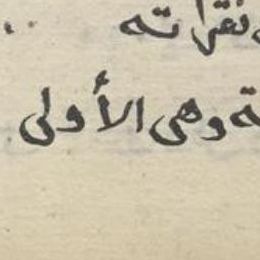 نقراته
وهى الأولى